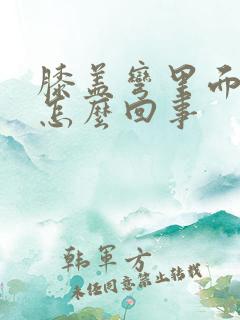 膝盖弯里而
怎麼回事
韩军方
未经同意禁止转载